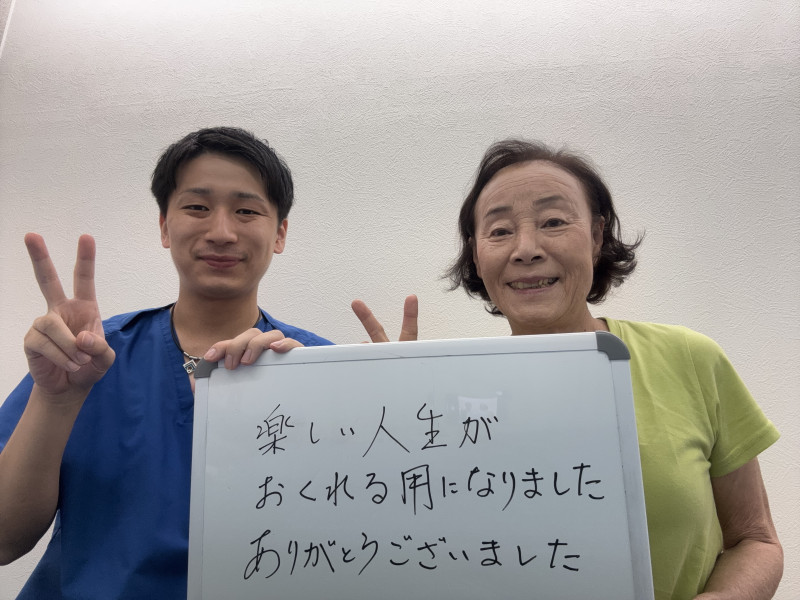 楽しい人生が
おくれる用になりました
ありがとうございました